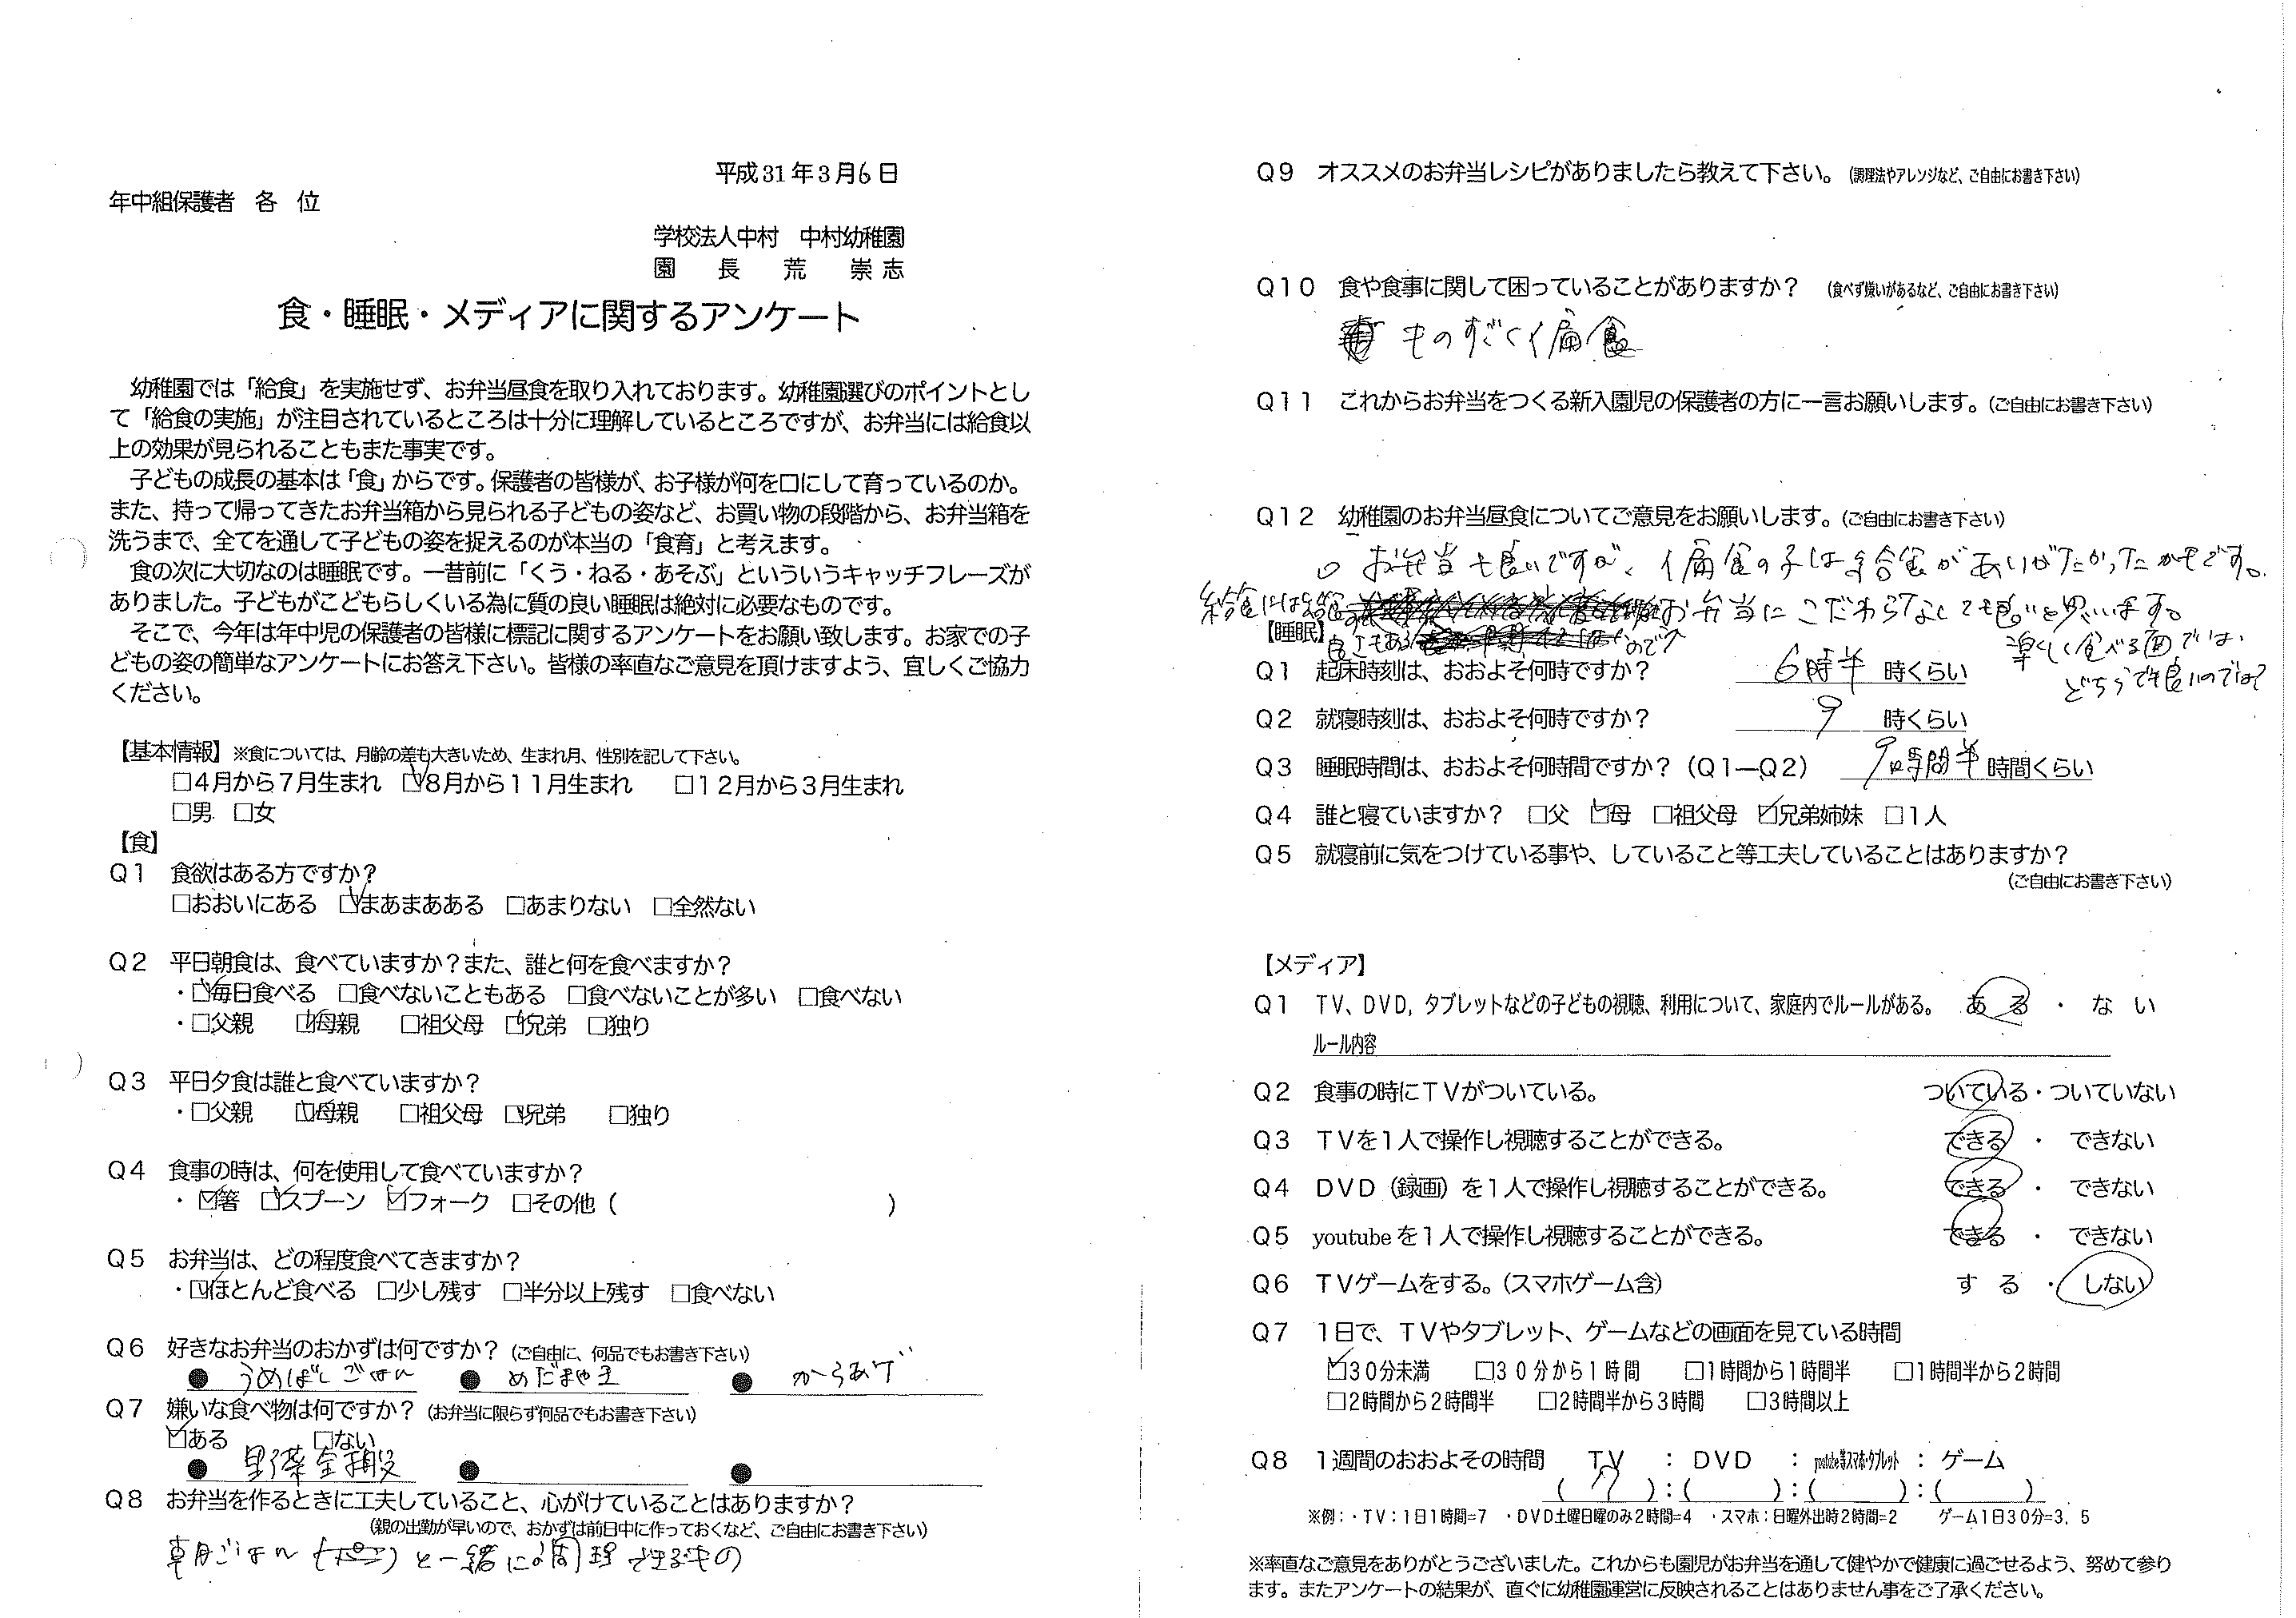 平成31年3月6日
年中組保護者 各 位
学校法人中村 中村幼稚園
園 長 荒 崇志
食・睡眠・メディアに関するアンケート
幼稚園では「給食」を実施せず、お弁当昼食を取り入れております。幼稚園選びのポイントとし
て「給食の実施」が注目されているところは十分に理解しているところですが、お弁当には給食以
上の効果が見られることもまた事実です。
子どもの成長の基本は「食」からです。保護者の皆様が、お子様が何を口にして育っているのか。
また、持って帰ってきたお弁当箱から見られる子どもの姿など、お買い物の段階から、お弁当箱を
洗うまで、全てを通して子どもの姿を捉えるのが本当の「食育」と考えます。
食の次に大切なのは睡眠です。一昔前に「くう・ねる・あそぶ」といういうキャッチフレーズが
ありました。子どもがこどもらしくいる為に質の良い睡眠は絶対に必要なものです。
そこで、今年は年中児の保護者の皆様に標記に関するアンケートをお願い致します。お家での子
どもの姿の簡単なアンケートにお答え下さい。皆様の率直なご意見を頂けますよう、宜しくご協力
ください。
【基本情報】※食については、月齢の差も大きいため、生まれ月、性別を記して下さい。
□4月から7月生まれ ☑8月から11月生まれ □12月から3月生まれ
□男 □女
【食】
Q1 食欲はある方ですか？
□おおいにある ☑まあまあある □あまりない □全然ない
Q2 平日朝食は、食べていますか？また、誰と何を食べますか？
・☑毎日食べる □食べないこともある □食べないことが多い □食べない
・□父親 ☑母親 □祖父母 ☑兄弟 □独り
Q3 平日夕食は誰と食べていますか？
・□父親 ☑母親 □祖父母 ☑兄弟 □独り
Q4 食事の時は、何を使用して食べていますか？
・☑箸 ☑スプーン ☑フォーク □その他（ ）
Q5 お弁当は、どの程度食べてきますか？
・☑ほとんど食べる □少し残す □半分以上残す □食べない
Q6 好きなお弁当のおかずは何ですか？（ご自由に、何品でもお書き下さい）
● うめぼしごはん ● めだまやき ● からあげ
Q7 嫌いな食べ物は何ですか？（お弁当に限らず何品でもお書き下さい）
☑ある □ない
● 野菜全般 ● ●
Q8 お弁当を作るときに工夫していること、心がけていることはありますか？
（親の出勤が早いので、おかずは前日中に作っておくなど、ご自由にお書き下さい）
朝ごはん と一緒に調理できるもの
Q9 オススメのお弁当レシピがありましたら教えて下さい。（調理法やアレンジなど、ご自由にお書き下さい）
Q10 食や食事に関して困っていることがありますか？ （食べず嫌いがあるなど、ご自由にお書き下さい）
ものすごく偏食
Q11 これからお弁当をつくる新入園児の保護者の方に一言お願いします。（ご自由にお書き下さい）
Q12 幼稚園のお弁当昼食についてご意見をお願いします。（ご自由にお書き下さい）
お弁当も良いですが、偏食の子は給食がありがたかったかもです。
給食には給食 お弁当にこだわらなくても良いと思います。
良さもある ので
楽しく食べる面では、
どちらでも良いのでは?
【睡眠】
Q1 起床時刻は、おおよそ何時ですか？ 6時半 時くらい
Q2 就寝時刻は、おおよそ何時ですか？ 9 時くらい
Q3 睡眠時間は、おおよそ何時間ですか？（Q1―Q2） 9時間半 時間くらい
Q4 誰と寝ていますか？ □父 ☑母 □祖父母 ☑兄弟姉妹 □1人
Q5 就寝前に気をつけている事や、していること等工夫していることはありますか？
（ご自由にお書き下さい）
【メディア】
Q1 TV、DVD，タブレットなどの子どもの視聴、利用について、家庭内でルールがある。 ある ・ ない
ルール内容
Q2 食事の時にTVがついている。 ついている・ついていない
Q3 TVを1人で操作し視聴することができる。 できる ・ できない
Q4 DVD（録画）を1人で操作し視聴することができる。 できる ・ できない
Q5 youtubeを1人で操作し視聴することができる。 できる ・ できない
Q6 TVゲームをする。（スマホゲーム含） する ・ しない
Q7 1日で、TVやタブレット、ゲームなどの画面を見ている時間
☑30分未満 □30分から1時間 □1時間から1時間半 □1時間半から2時間
□2時間から2時間半 □2時間半から3時間 □3時間以上
Q8 1週間のおおよその時間 TV ：DVD ：youtube等スマホ・タブレット：ゲーム
（ 7 ）：（ ）：（ ）：（ ）
※例：・TV：1日1時間=7 ・DVD土曜日曜のみ2時間=4 ・スマホ：日曜外出時2時間=2 ゲーム1日30分=3．5
※率直なご意見をありがとうございました。これからも園児がお弁当を通して健やかで健康に過ごせるよう、努めて参り
ます。またアンケートの結果が、直ぐに幼稚園運営に反映されることはありません事をご了承ください。